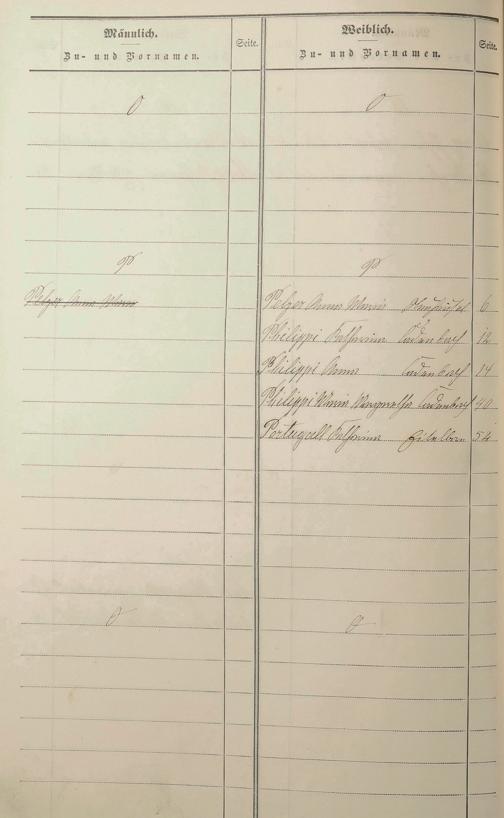 Männlich.
Zu- und Vornamen.
Seite.
Weiblich.
Zu- und Vornamen.
Seite.
O
O
P
P
Pelzer Anna Maria
Pelzer Anna Maria 6
Philippi Katharina Cadenbach 12
Philippi Anna Cadenbach 14
Philippi Maria Margaretha Cadenbach 40
Portugall Katharina Eitelborn 54